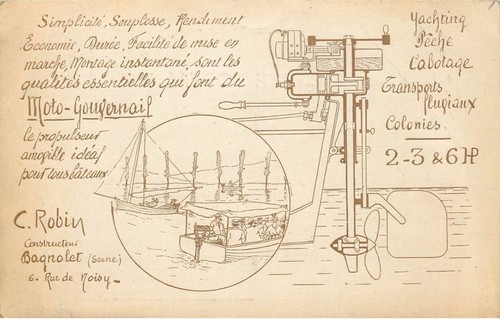 Simplicité, Souplesse, Rendement
Economie, Durée, Facilité de mise en
marche, Montage instantané, sont les
qualités essentielles qui font du
Moto-Gouvernail
le propulseur
amovible idéal
pour tous bateaux
C. Robin
Constructeur
Bagnolet (Seine)
6 - Rue de Noisy -
Yachting
Pêche
Cabotage
Transports
fluviaux
Colonies.
2-3 & 6 HP